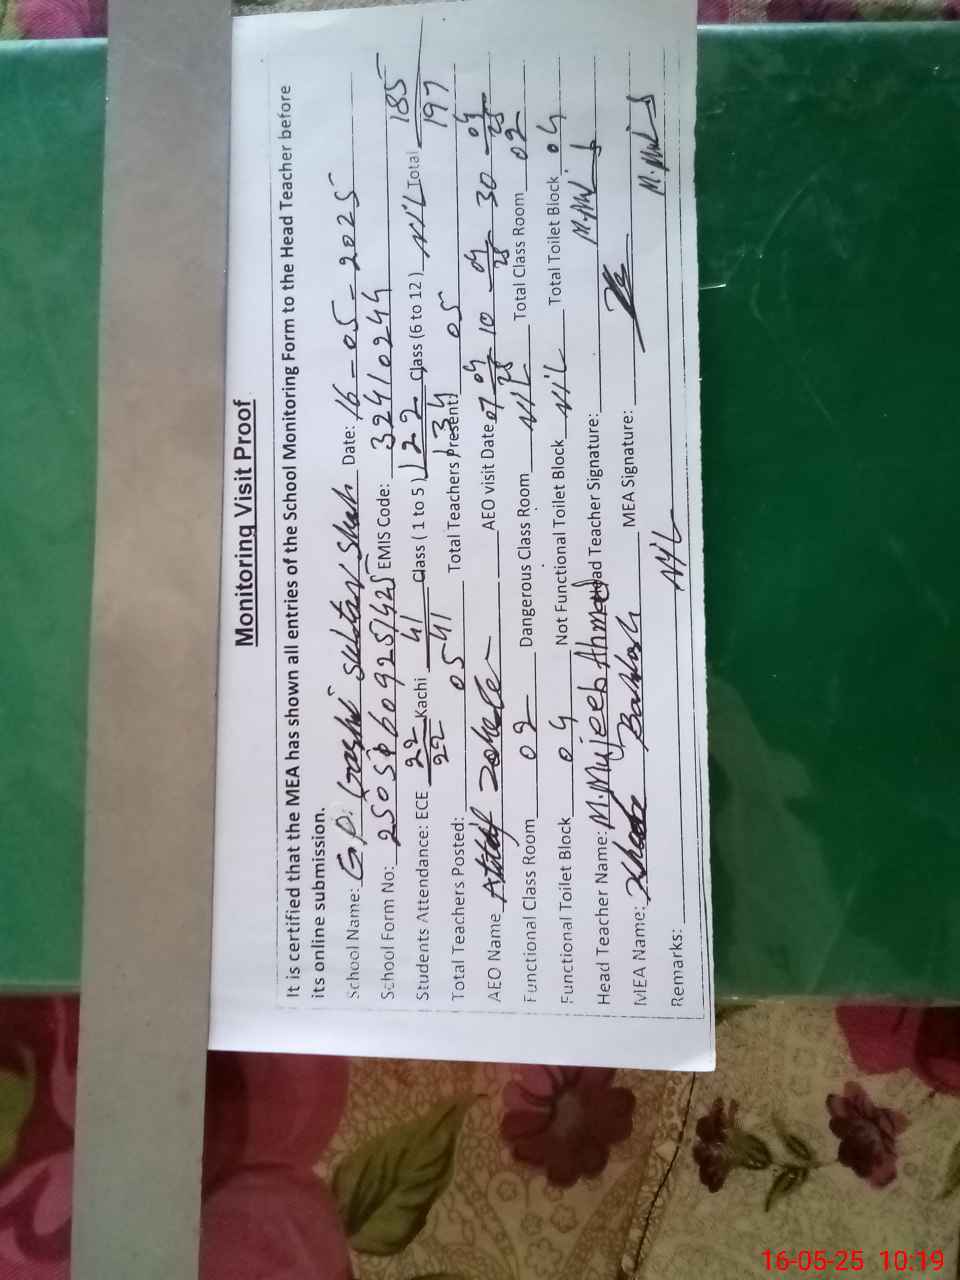 Monitoring Visit Proof
It is certified that the MEA has shown all entries of the School Monitoring Form to the Head Teacher before
its online submission.
School Name: G.P. Sultan Shah Date: 16-05-2025
School Form No: EMIS Code: 32410244
Students Attendance: ECE 22/22 Kachi 41/41 Class ( 1 to 5 ) 122/134 Class (6 to 12 ) NIL Total 185/197
Total Teachers Posted: 05 Total Teachers Present: 05
AEO Name AEO visit Date 07-04-25 10-04-25 30-04-25
Functional Class Room 02 Dangerous Class Room NIL Total Class Room 02
Functional Toilet Block 04 Not Functional Toilet Block NIL Total Toilet Block 04
Head Teacher Name: M. Mujeeb Ahmad Head Teacher Signature:
MEA Name: MEA Signature:
Remarks: NIL
16-05-25 10:19